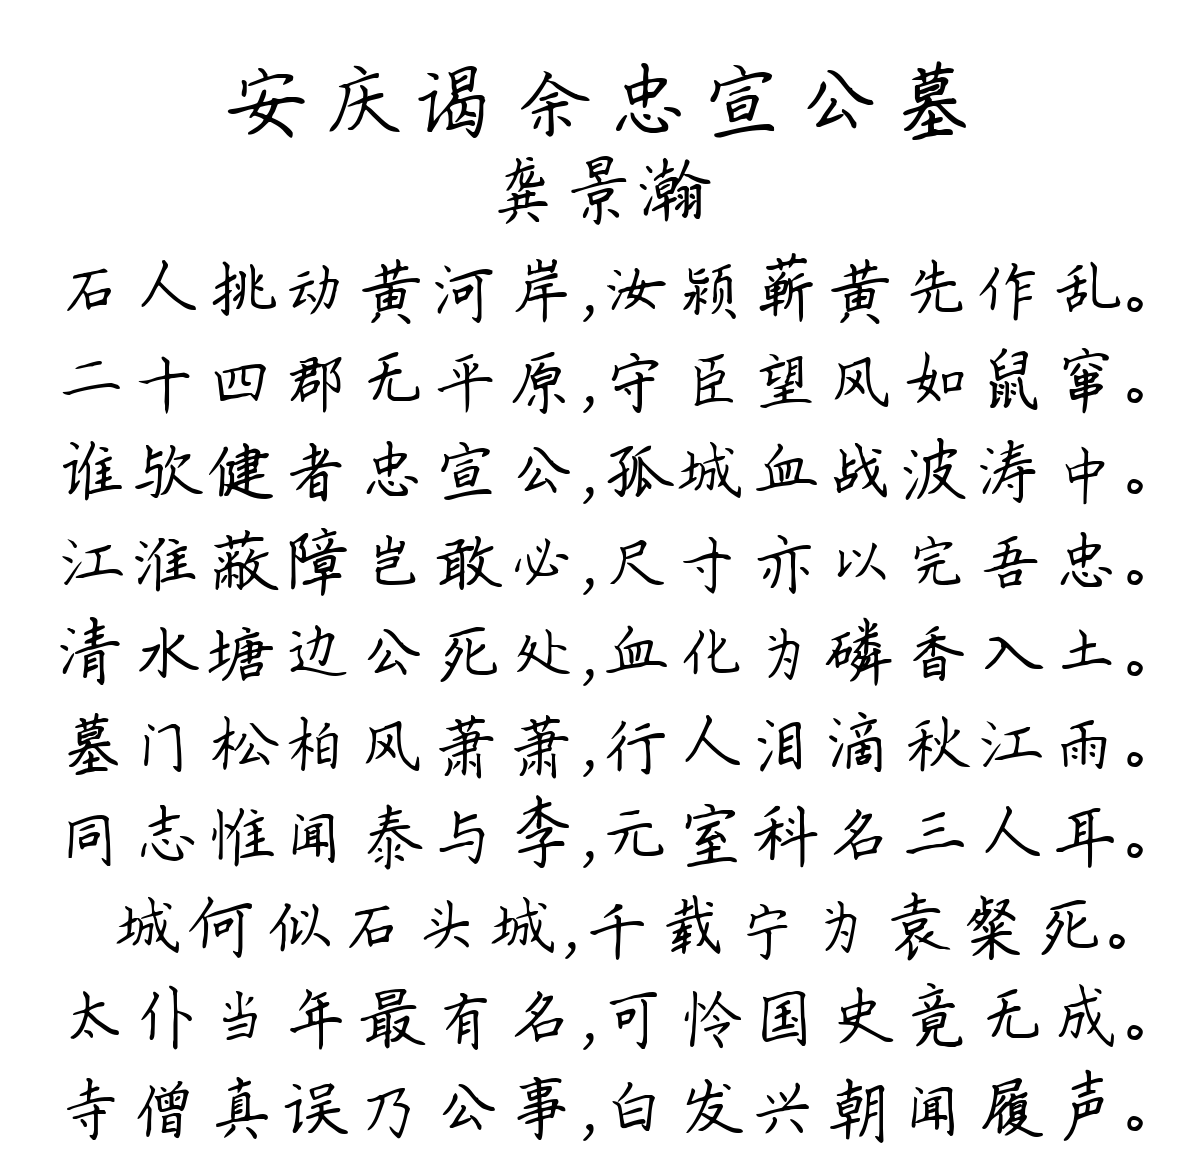 安庆谒余忠宣公墓
龚景瀚
石人挑动黄河岸,汝颍蕲黄先作乱。
二十四郡无平原,守臣望风如鼠窜。
谁欤健者忠宣公,孤城血战波涛中。
江淮蔽障岂敢必,尺寸亦以完吾忠。
清水塘边公死处,血化为磷香入土。
墓门松柏风萧萧,行人泪滴秋江雨。
同志惟闻泰与李,元室科名三人耳。
城何似石头城,千载宁为袁粲死。
太仆当年最有名,可怜国史竟无成。
寺僧真误乃公事,白发兴朝闻履声。